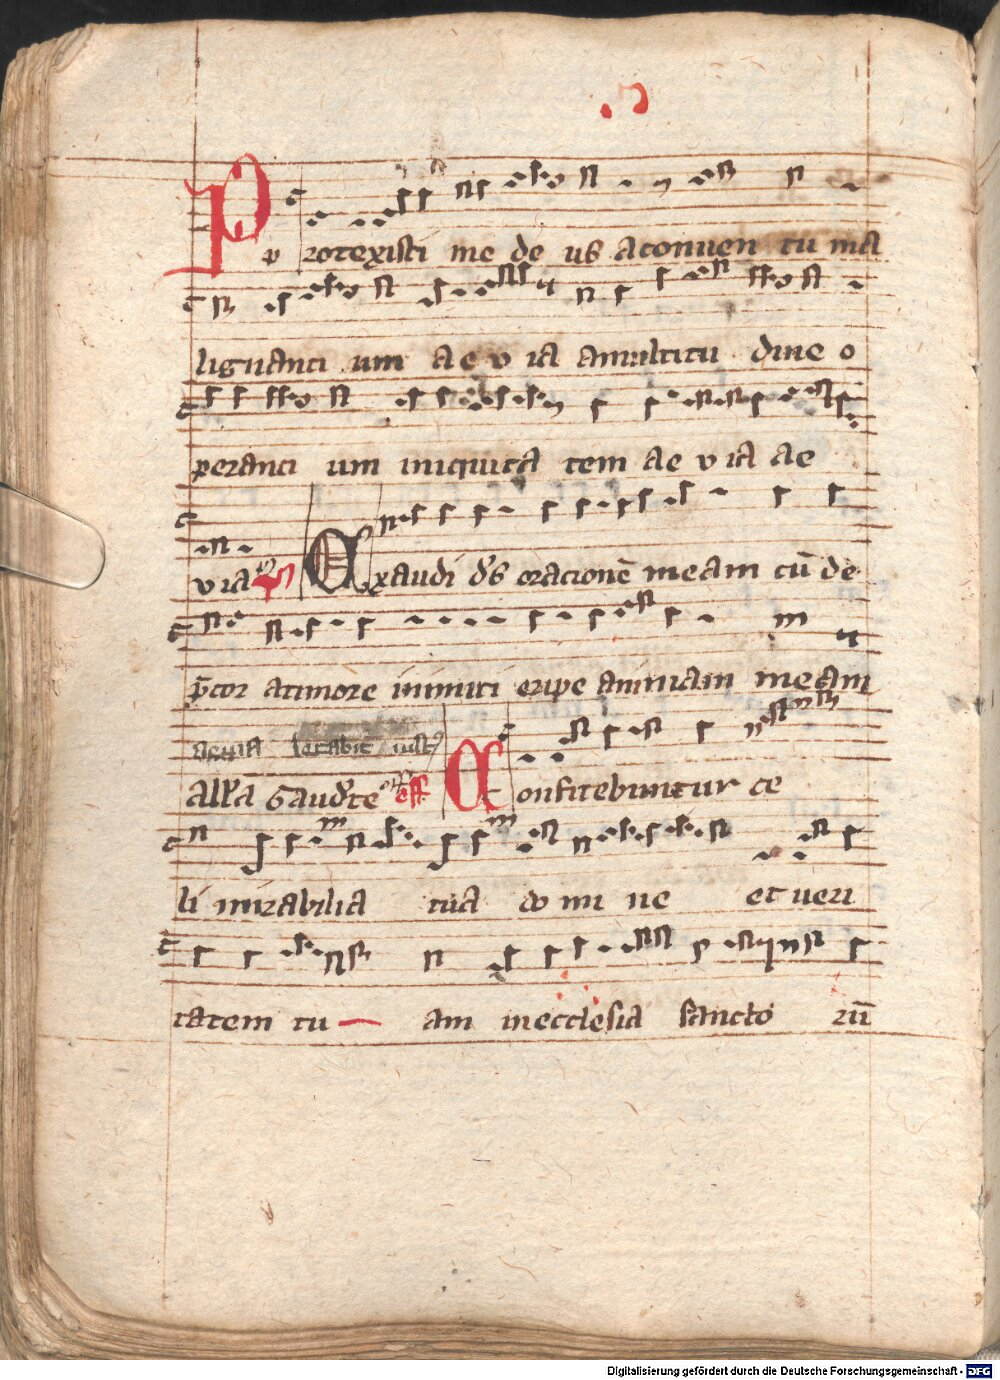 P p rotexisti me de us a conuen tu ma
lignanci um a e v ia a multitu dine o
peranci um iniquita tem ae v ia ae
v ia Exaudi ds oracionē meam cū de
p̄cor a timore inimici eripe animam meam
aeuia letabit iust9
all'a Gaud'te off Confitebuntur ce
li mirabilia tua do mi ne et veri
tatem tu am in ecclesia sancto rū
Digitalisierung gefördert durch die Deutsche Forschungsgemeinschaft - DFG